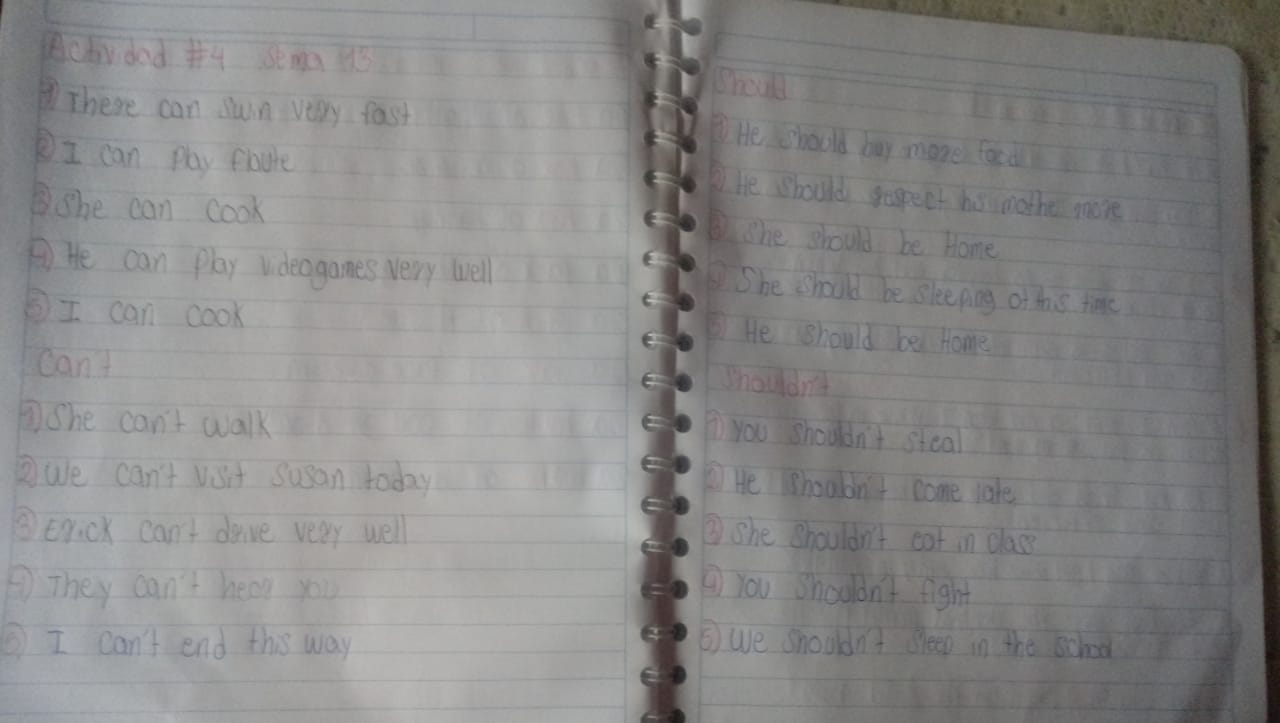 Actividad #4 Sema 13
1 There can swin very fast
2 I can play flaute
3 She can cook
4 He can play videogames very well
5 I can cook
Can't
1 She can't walk
2 We can't visit Susan today
3 Erick can't drive very well
4 They can't hear you
5 I can't end this way
Should
1 He should buy more food
2 He should respect his mothe more
3 She should be Home
4 She should be sleeping at this time
5 He should be Home
Shouldn't
1 You shouldn't steal
2 He shouldn't come late
3 She shouldn't eat in class
4 You shouldn't fight
5 We shouldn't sleep in the school